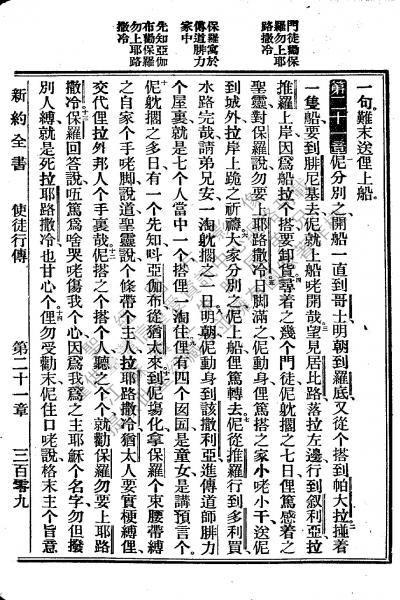 門徒勸保
羅勿上耶
路撒冷
保羅寓於
傳道腓力
家中
先知亞伽
布勸保羅
勿上耶路
撒冷
一句難末送俚上船。
第二十一章伲分別之開船一直到哥士明朝到羅底又從个搭到帕大拉捱着
一隻船要到腓尼基去伲就上船咾開哉望見居比路落拉左邊行到叙利亞拉
推羅上岸因爲船拉个搭要卸貨尋着之幾个門徒伲躭擱之七日俚篤感着之
聖靈對保羅說勿要上耶路撒冷日脚滿之伲動身俚篤搭之家小咾小干送伲
到城外拉岸上跪之祈禱大家分別之伲上船俚篤轉去伲從推羅行到多利買
水路完哉請弟兄安一淘躭擱之一日明朝伲動身到該撒利亞進傳道師腓力
个屋裏就是七个人當中一个搭俚淘住俚有四个囡囝是童女是講預言个
伲躭擱之多日有一个先知呌亞伽布從猶太來到伲塲化拿保羅个束腰帶縛
之自家个手咾脚說道聖靈說个條帶个主人拉耶路撒冷猶太人要實梗縛俚
交代俚拉外邦人个手裏哉伲搭之个搭个人聽之个就勸保羅勿要上耶路
撒冷保羅回答說篤爲啥哭咾傷我个心因爲我爲之主耶穌个名字勿但撥
別人縛就是死拉耶路撒冷也甘心个俚勿受勸末伲住口咾說格末主个旨意
新約全書 使徒行傳 第二十一章 三百零九